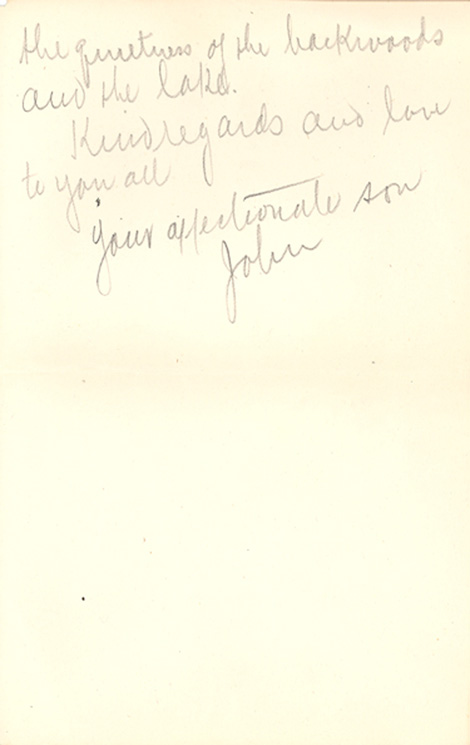 the quietness of the backwoods
and the lake.
Kind regards and love
to you all
Your affectionate son
John